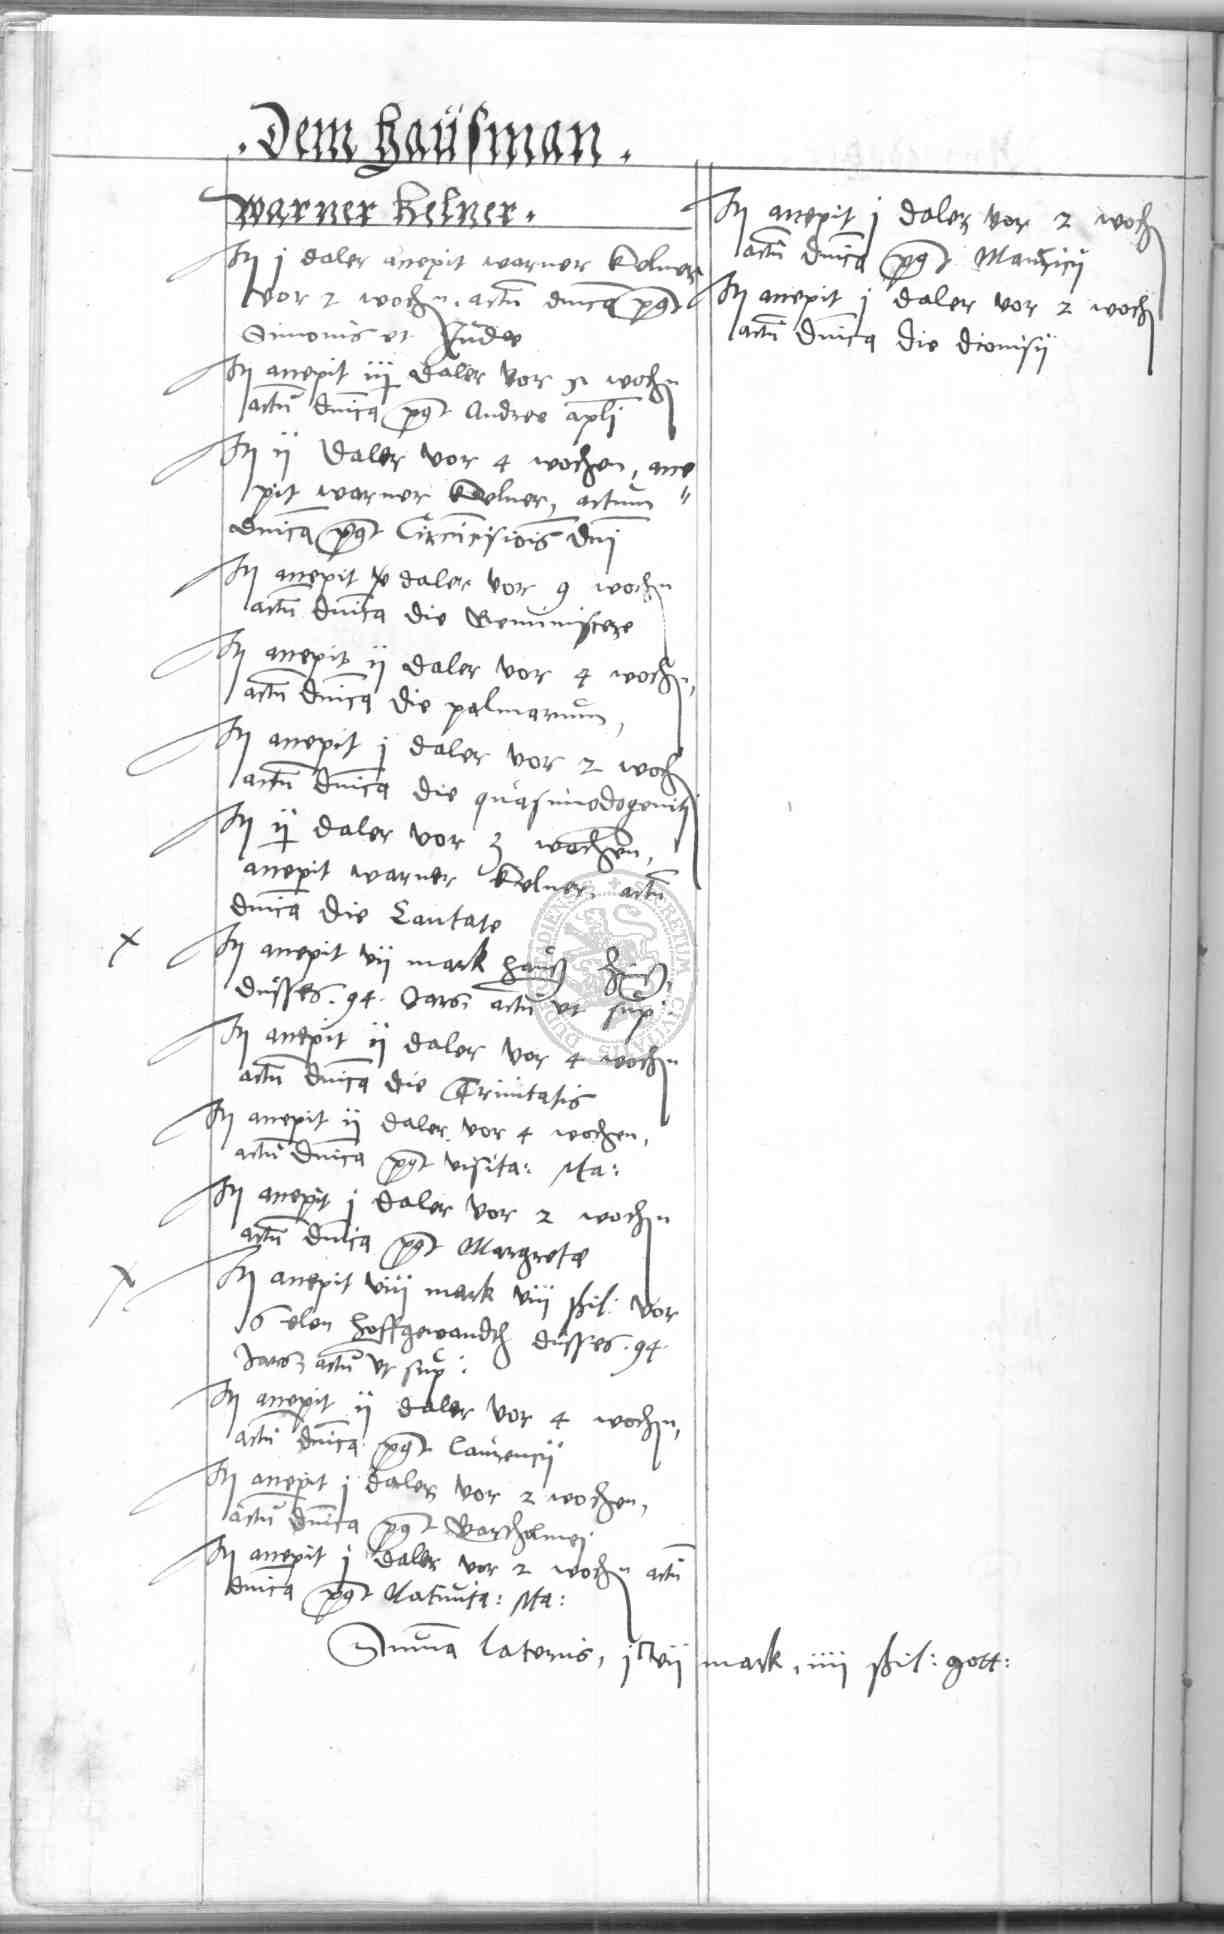 . Dem Haüsman .
Warner Kelner.
It j daler accepit warner Kelner
vor 2 wochen. actū dn̄ica post
Simonis et Judae
It accepit iij daler vor 5 wochn
actū dn̄ica post Andree apl̄i
It ij Daler vor 4 wochen, acce
pit warner Kelner, actum
dn̄ica post Circūcisiōis dn̄i
It accepit daler vor 9 wochn
actū dn̄ica die Reminiscere
It accepit ij daler vor 4 wochn,
actū dn̄ica die palmarum,
It accepit j daler vor 2 woch
actū dn̄ica die quasimodogeniti
It ij daler vor 3 wochen,
accepit warner Kelner, actū
dn̄ica die Cantate
It accepit vij mark hauß
düsses .94. Jars actū vt sup:
It accepit ij daler vor 4 wochn
actū dn̄ica die Trinitatis
It accepit ij daler vor 4 wochen,
actū dn̄ica post visita: Ma:
It accepit j daler vor 2 wochn
actū dn̄ica post Margretae
It accepit viij mark viij schil: vor
6 elen hoffgewandth düsses .94.
Jars actū vt sup:
It accepit ij daler vor 4 wochn,
actū dn̄ica post laurencij
It accepit j daler vor 2 wochen,
actū dn̄ica post Bartholmei
It accepit j daler vor 2 wochn actū
dn̄ica post Natiuita: Ma:
It accepit j daler vor 2 woch
actū dn̄ica post Mauricij
It accepit j daler vor 2 woch
actū dn̄ica die dionisij
Summa lateris, mark, iiij schil: gott: